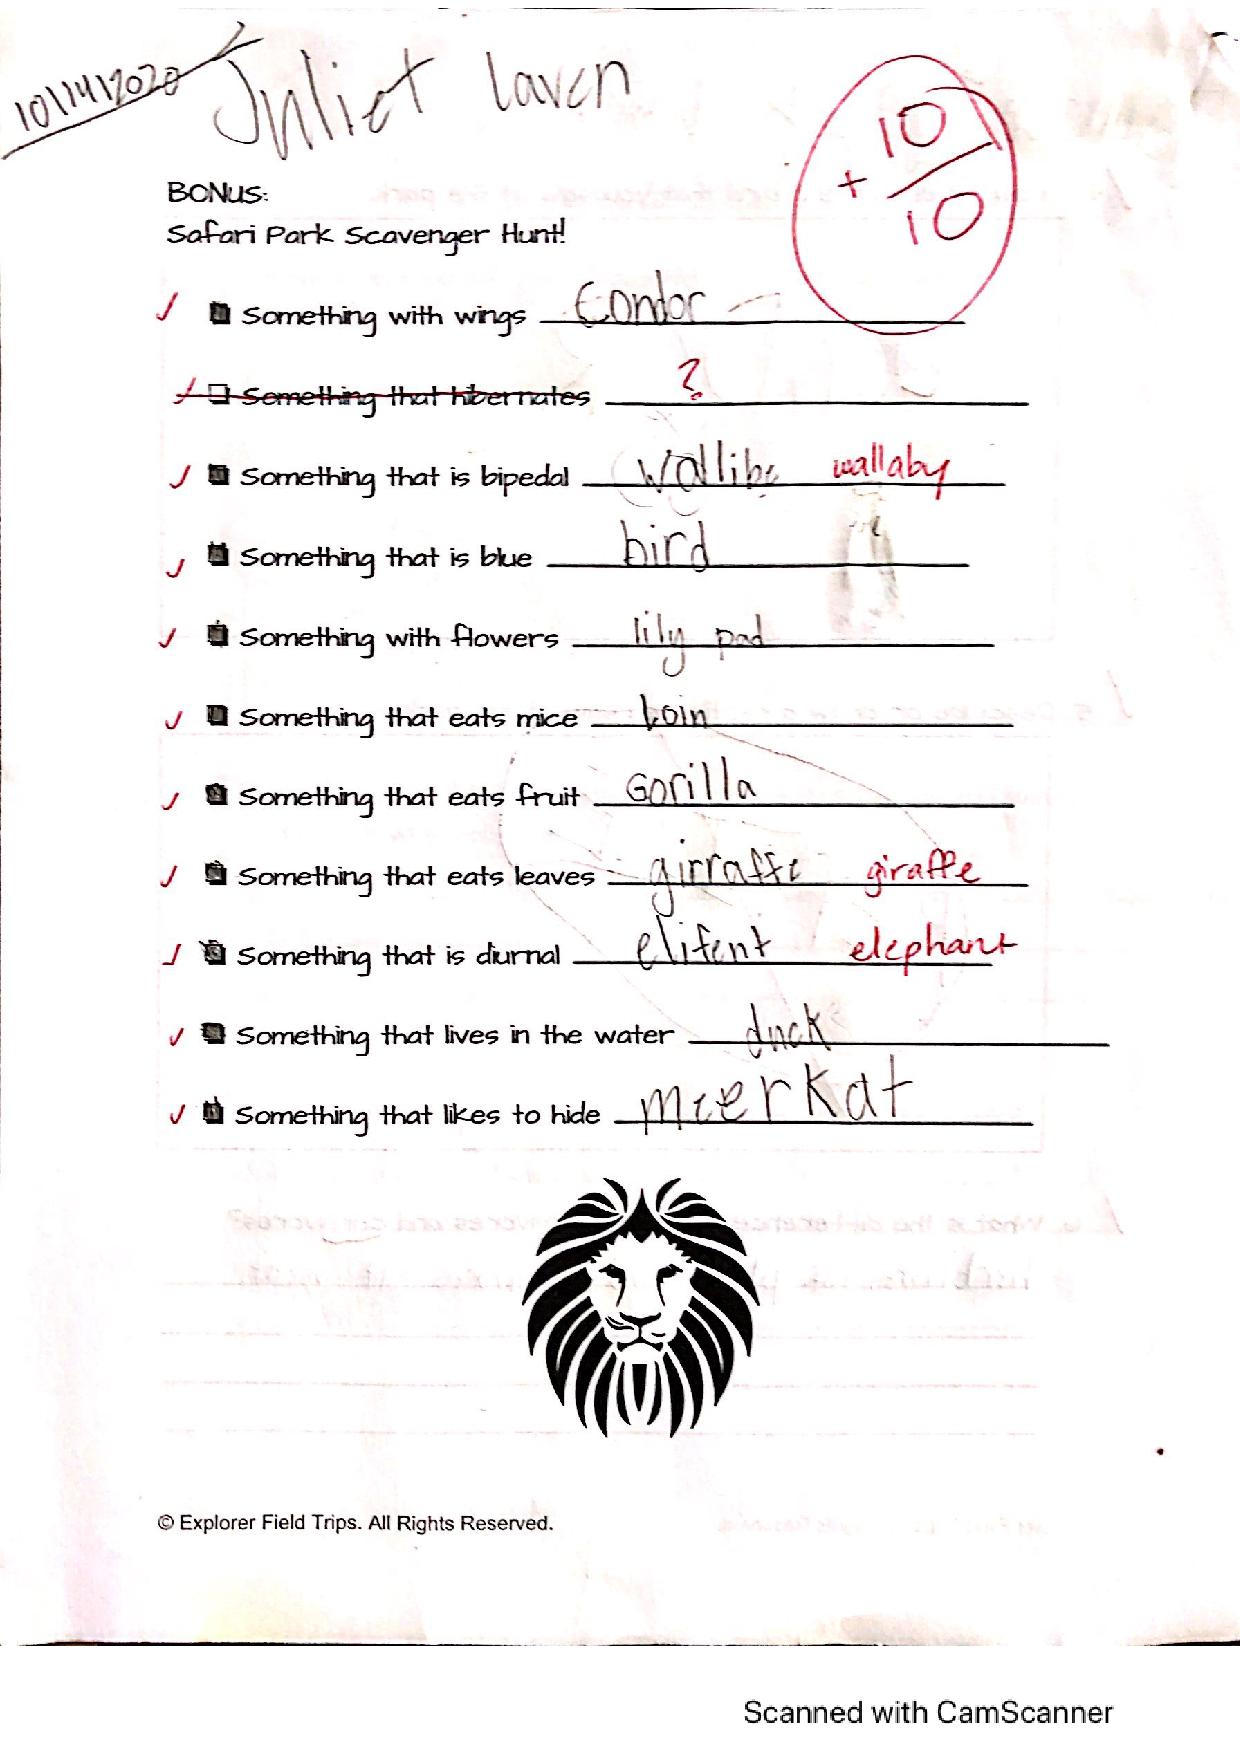 10/14/2020 Juliet Laven
+ 10/10
BONUS:
Safari Park Scavenger Hunt!
Something with wings Condor
Something that hibernates ?
Something that is bipedal wallibe wallaby
Something that is blue bird
Something with flowers lily pad
Something that eats mice loin
Something that eats fruit Gorilla
Something that eats leaves girraffe giraffe
Something that is diurnal elifent elephant
Something that lives in the water duck
Something that likes to hide meerkat
© Explorer Field Trips. All Rights Reserved.
Scanned with CamScanner